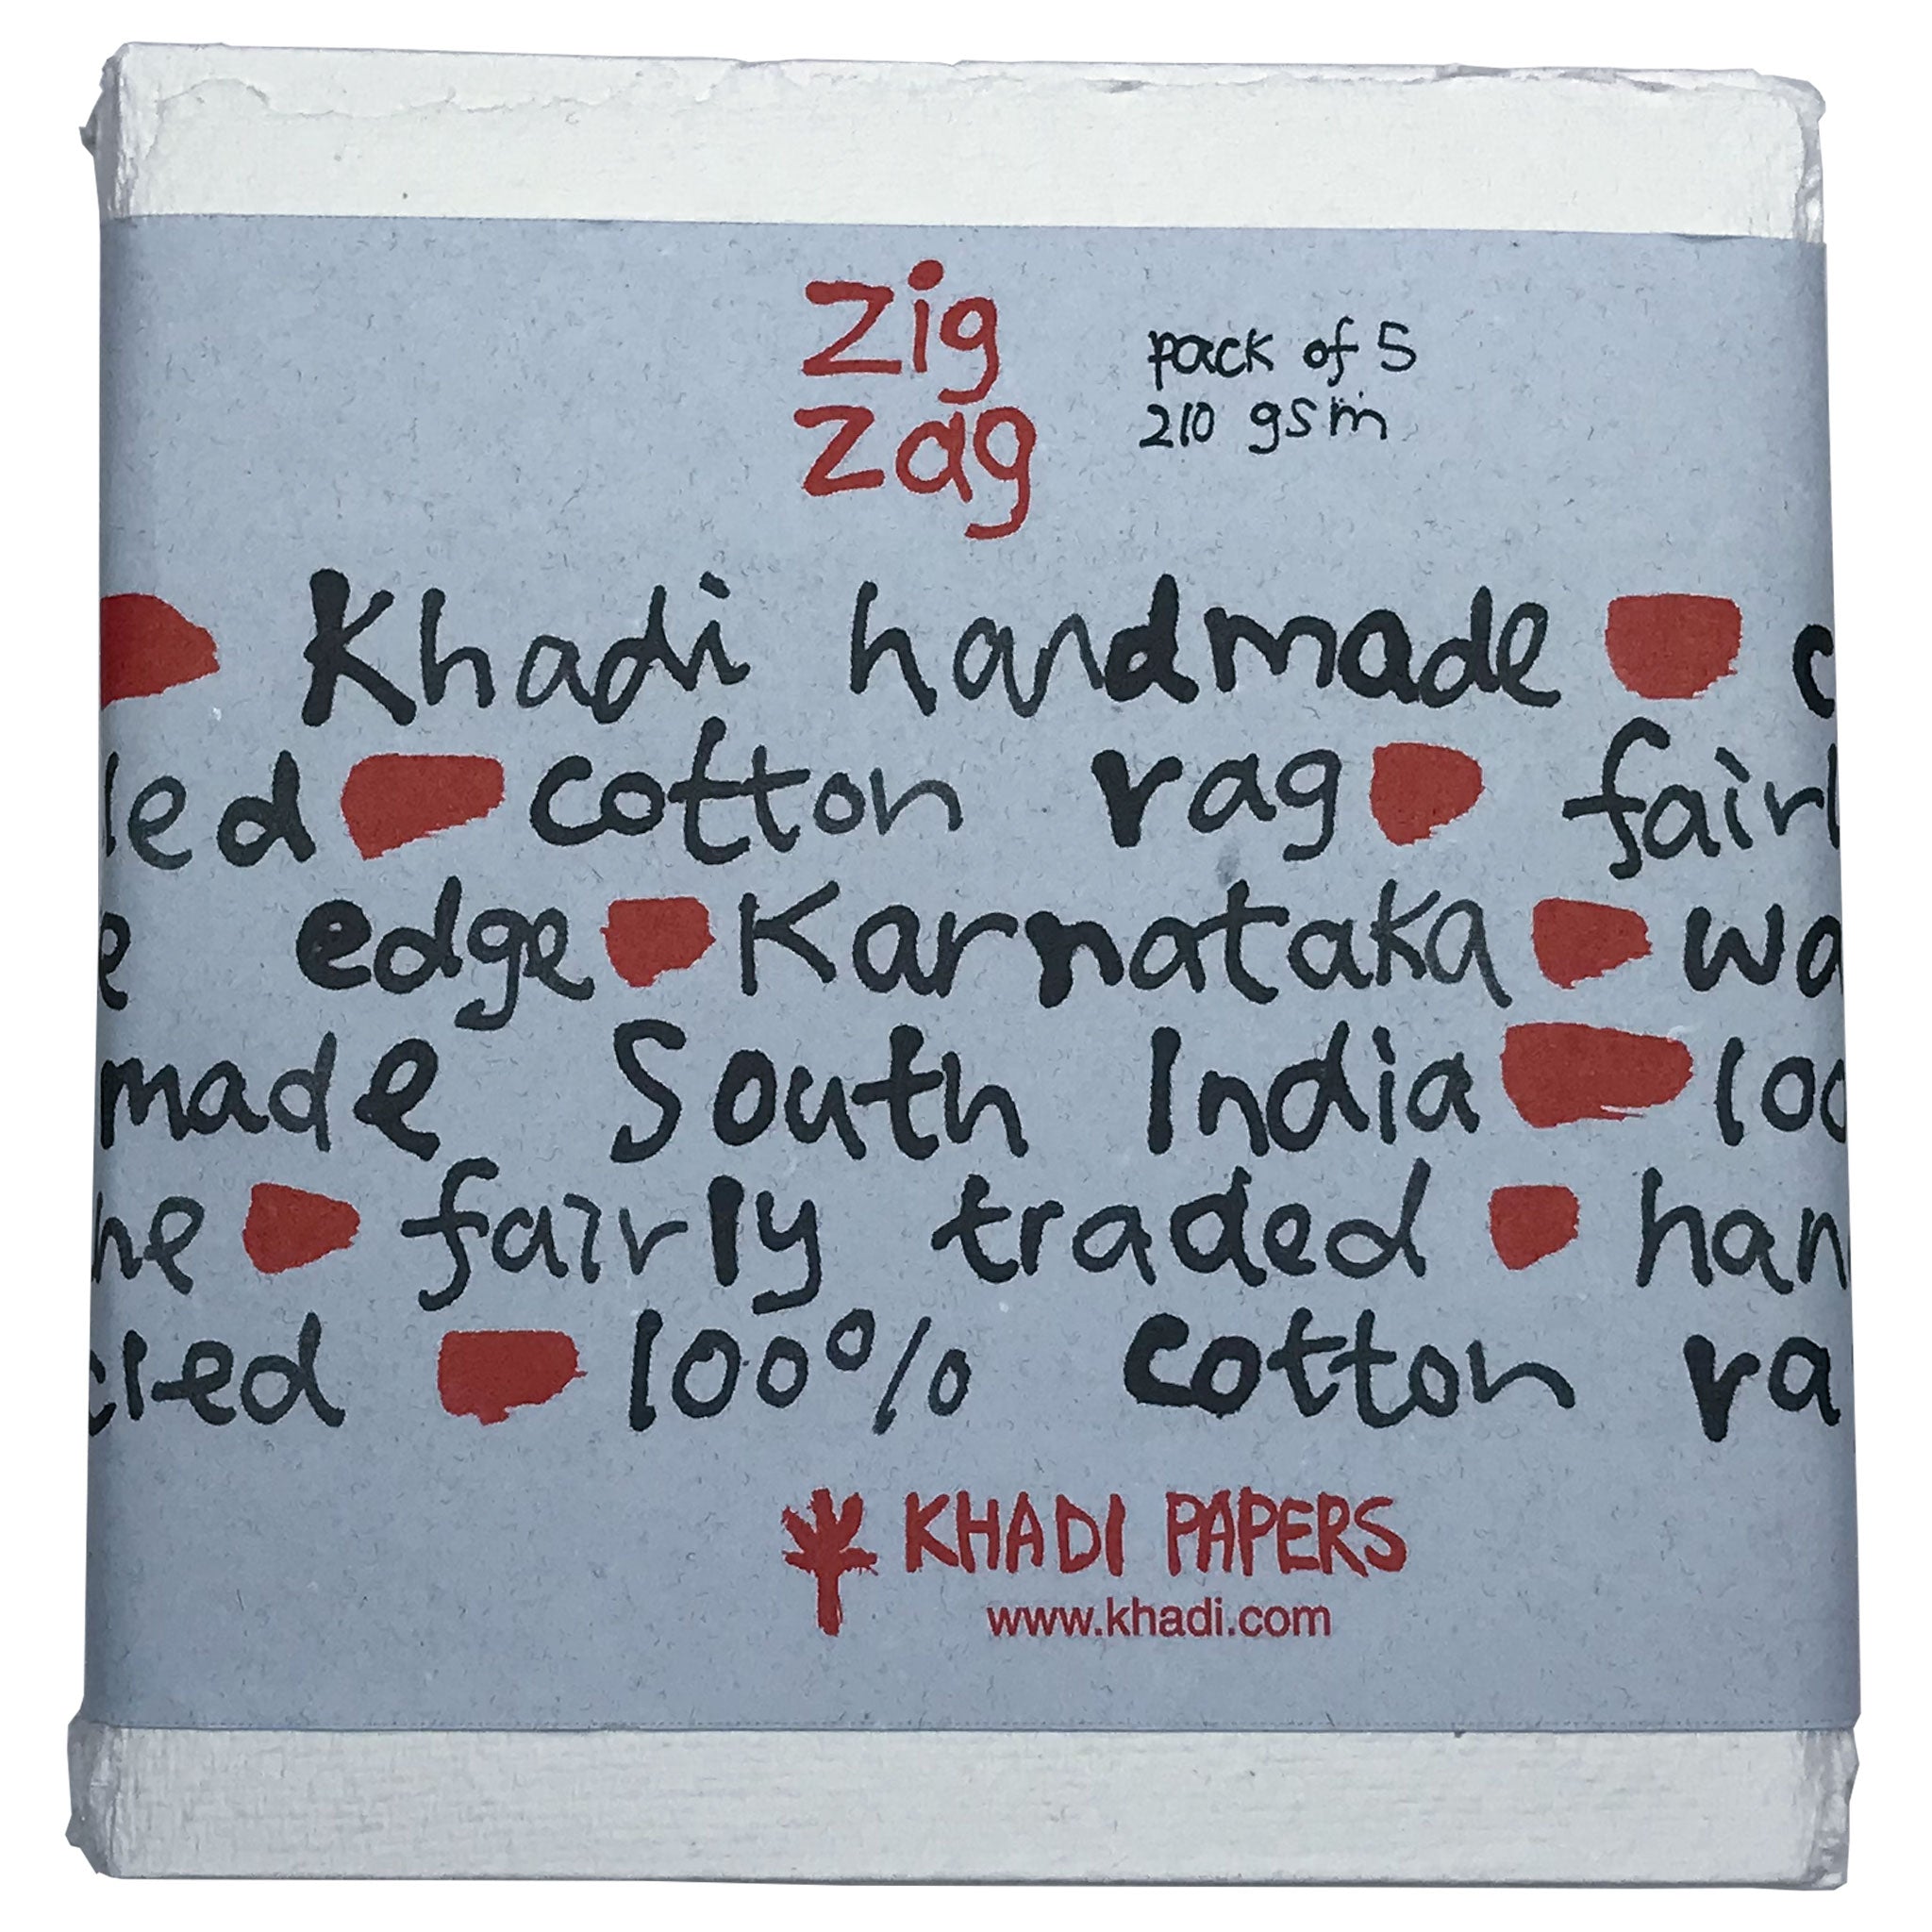 Zig
Zag
pack of 5
210 gsm
Khadi handmade c
led cotton rag fairl
e edge Karnataka wa
made South India 100
he fairly traded han
cled 100% cotton ra
KHADI PAPERS
www.khadi.com